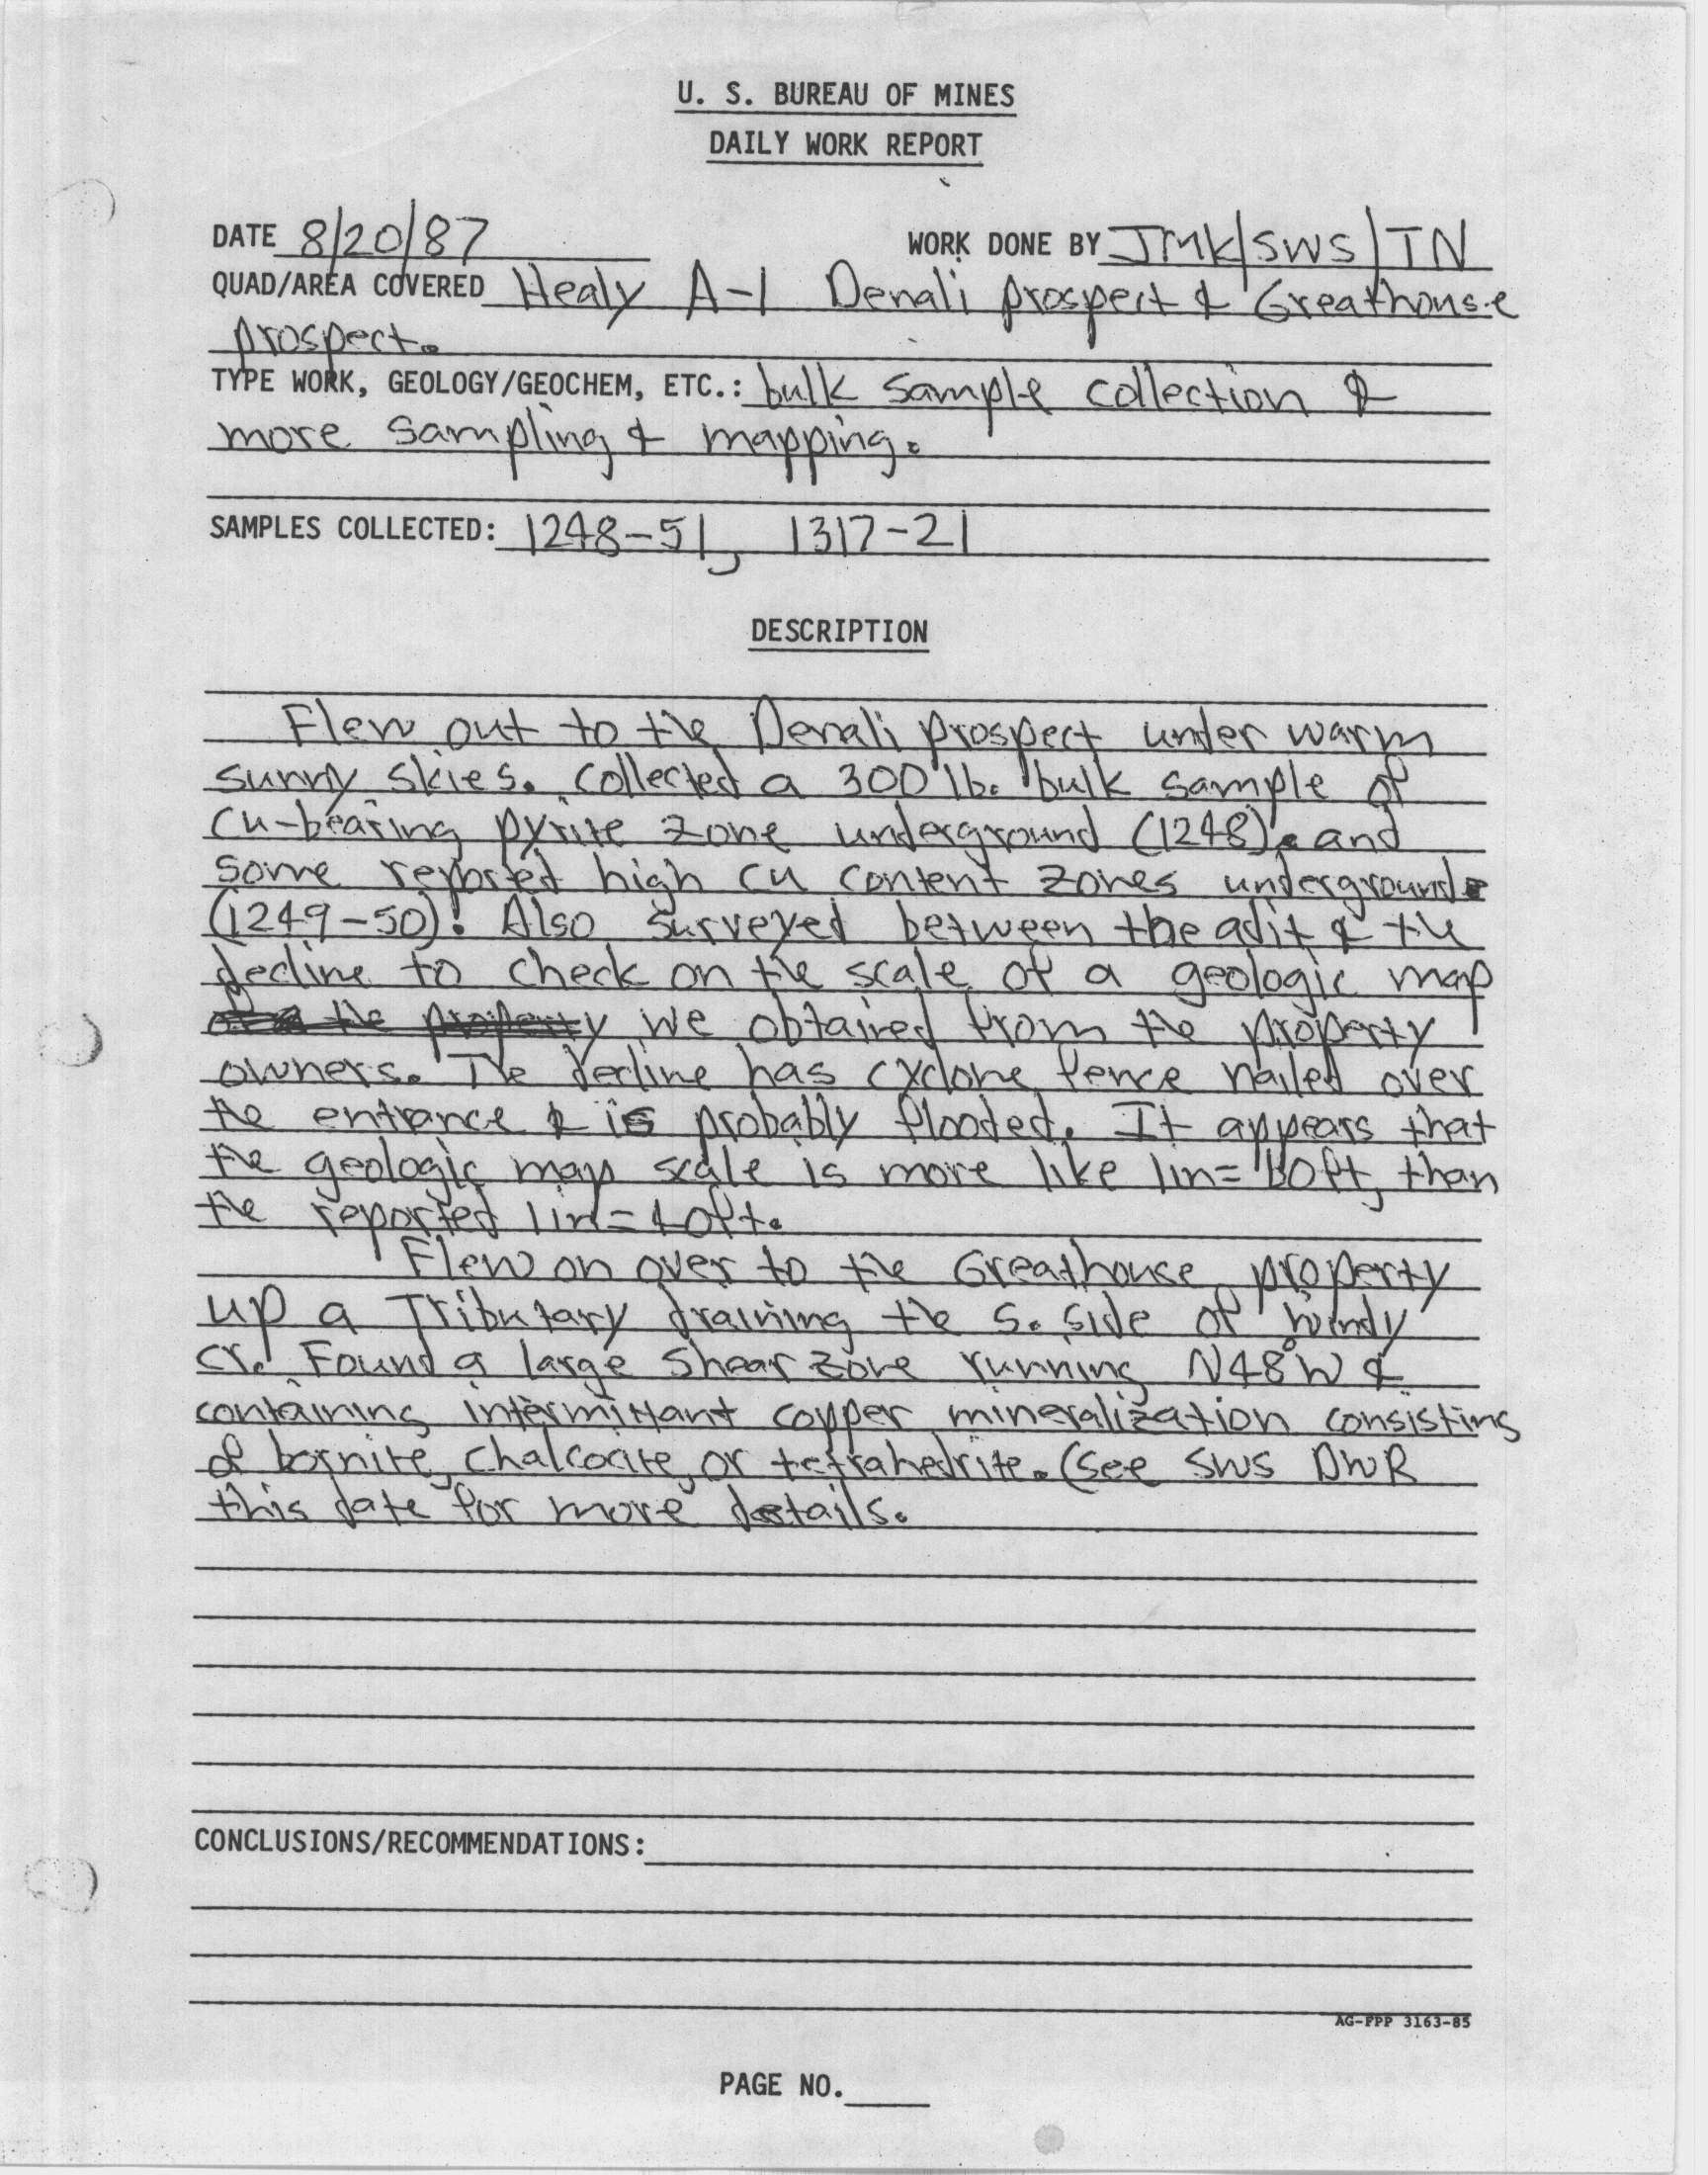 U. S. BUREAU OF MINES
DAILY WORK REPORT
DATE 8/20/87 WORK DONE BY JMK/SWS/TN
QUAD/AREA COVERED Healy A-1 Denali prospect & Greathouse
prospect.
TYPE WORK, GEOLOGY/GEOCHEM, ETC.: bulk sample collection &
more sampling & mapping.
SAMPLES COLLECTED: 1248-51, 1317-21
DESCRIPTION
Flew out to the Denali prospect under warm
sunny skies. Collected a 300 lb. bulk sample of
Cu-bearing pyrite zone underground (1248), and
some reported high Cu content zones underground
(1249-50). Also surveyed between the adit & the
decline to check on the scale of a geologic map
the property we obtained from the property
owners. The decline has cyclone fence nailed over
the entrance & is probably flooded. It appears that
the geologic map scale is more like 1in= ft, than
the reported 1in=40ft.
Flew on over to the Greathouse property
up a Tributary draining the S. side of Windy
Cr. Found a large shear zone running N48°W &
containing intermittant copper mineralization consisting
of bornite, chalcocite, or tetrahedrite. (See SWS DWR
this date for more details.
CONCLUSIONS/RECOMMENDATIONS:
AG-FPP 3163-85
PAGE NO.